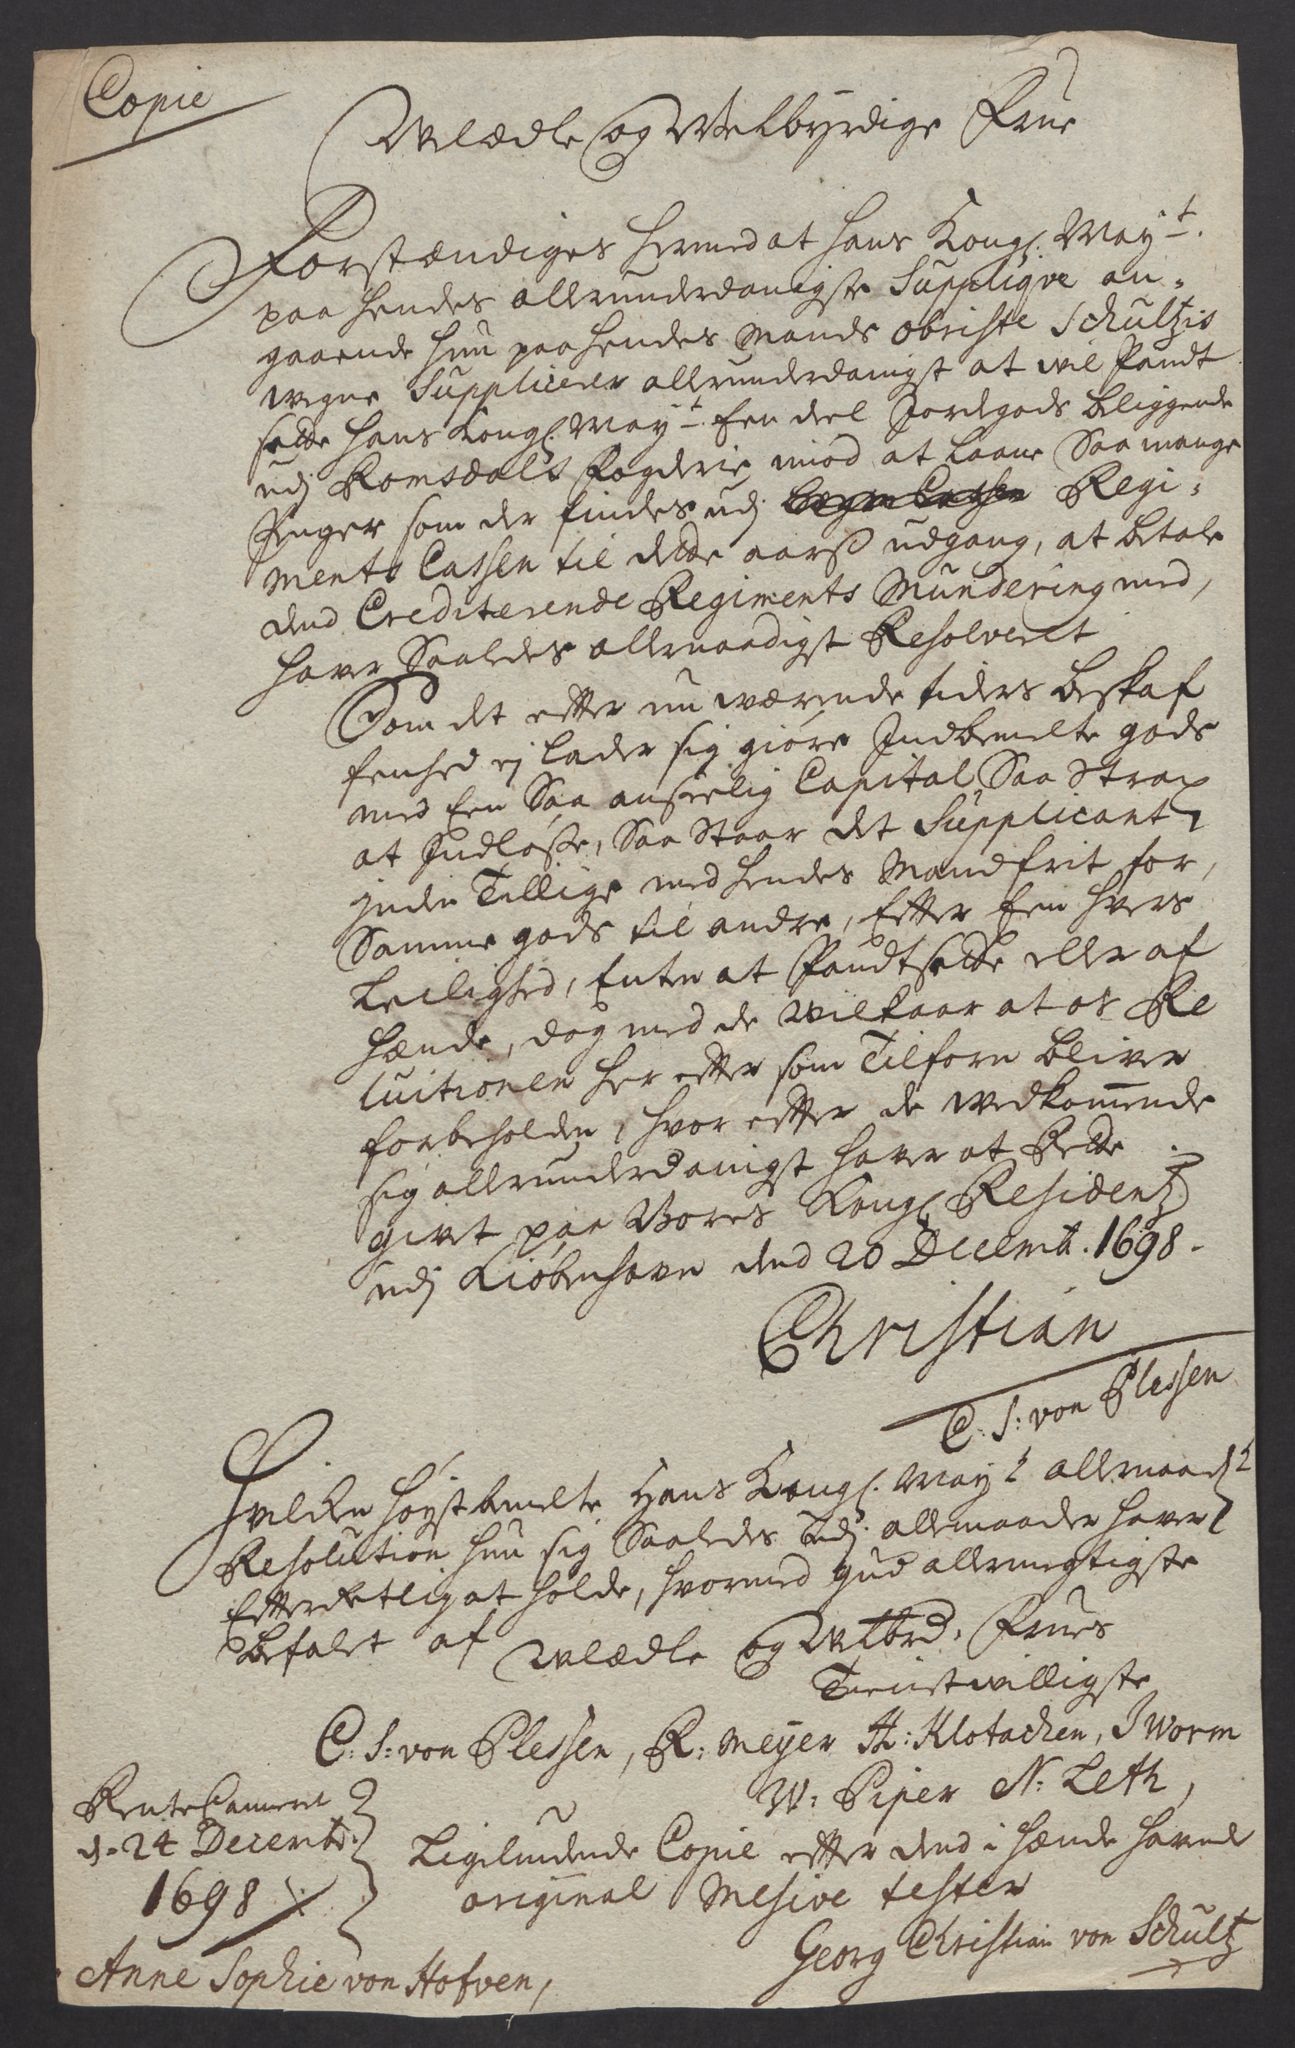 Copie
Wlædle og Welbyrdige Frue
Forstændiges hermed at hans Kongl. May:t.
paa hendes allerunderdanigste Suppliqve an-
gaaende hun paa hendes Mands obriste Schultzis
wegne Supplicerer allerunderdanigst at wil Pandt
sætte hans Kongl. May:t Een deel Jordegods beliggende
udj Romsdals Fogderie, imod at laane Saa mange
Penger som der findes udj Regi-
ments Cassen til dette aarß udgang, at betale
dend Crediterende Regiments Mundering med,
haver Saaledes allernaadigst Resolveret
Som det efter nu wærende tiders beskaf
fenhed ej lader sig giøre Indbemelte gods
med Een Saa anseelig Capital Saa Strax
at Indløsse, Saa Staar det Supplicant
inden Tillige med hendes Mand frit for,
Samme gods til andre, Efter Een hvers
Leilighed, Enten at Pandtsætte eller af
hænde, dog med de wilkaar at os Re
luitionen her efter som Tilforn bliver
forbeholden, hvor efter de wedkommende
sig allerunderdanigst haver at Rette
givet paa Vores Kongl. Residentz
udj Kiøbenhavn dend 20 Decemb. 1698.
Christian
C: S: von Plessen
Hvilken høystbemelte Hans Kongl. May:t allernaad:t
Resolution hun sig Saaledes udj allemaader haver
Efterretlig at holde, hvormed Gud allermegtigste
befalet af Wlædle og Welbrd. Frues
Tienstwilligste
C: S: von Plessen, R: Meyer H: Klotachen, J Worm
W: Piper N: Leth,
RenteCameret
d. 24 Decemb.
1698
Ligelydende Copie efter dend i hænde havende
original Mesive tester
Georg Christian von Schultz
Anne Sophie von Hofven,